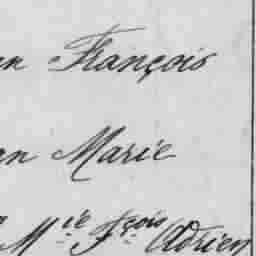 n François
an Marie
M.ie F.çois Adrien